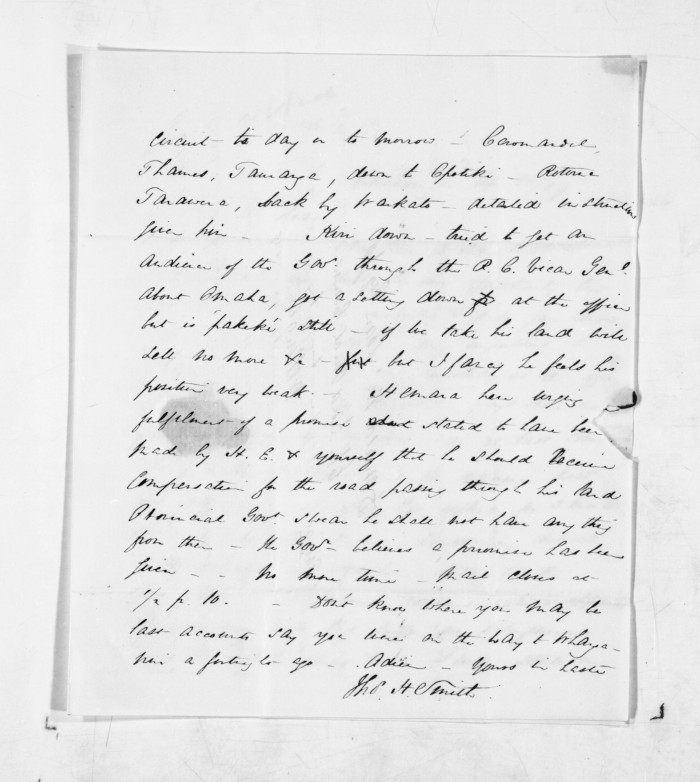 circuit to day or to morrow - Coromandel,
Thames, Tauranga, down to Opotiki - Rotorua
Tarawera, back by Waikato - detailed instructions
given him - Kivi down - tried to get an
audience of the Govr. through the R. C. Vicar Genl.
about Omaha, got a setting down at the office
but is 'pakeke' still - if we take his land will
sell no more &c - but I fancy he feels his
position very weak. - Hemara here urging
fulfilment of a promise stated to have been
made by H. E. & yourself that he should receive
compensation for the road passing through his land
Provincial Govt. swear he shall not have any thing
from them - the Govr. believes a promise has been
given - - No more time - Mail closes at
1/2 p. 10. - Don't know where you may be
last accounts say you were on the way to Whanga-
nui a fortnight ago - Adieu - Yours in haste
Jho. H. Smith